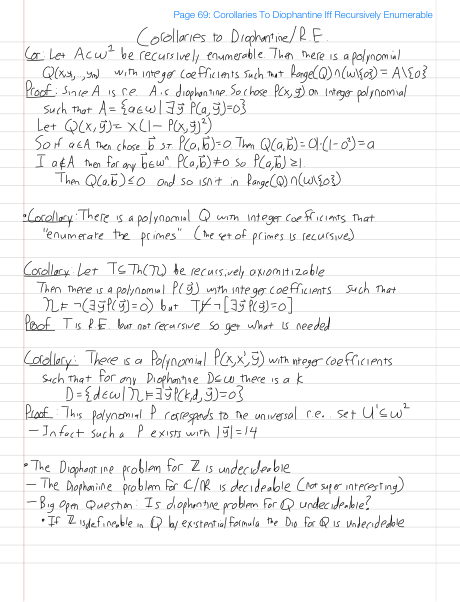 Page 69: Corollaries To Diophantine Iff Recursively Enumerable
Corollaries to Diophantine/R.E.
Cor: Let A⊂ω² be recursively enumerable. Then there is a polynomial
Q(x,y,...,yₘ) with integer coefficients such that Range(Q)∩(ω\{0}) = A\{0}
Proof: Since A is r.e. A is diophantine. So chose P(x,ȳ) an integer polynomial
such that A = {a∈ω | ∃ȳ P(a,ȳ)=0}
Let Q(x,ȳ) = x(1-P(x,ȳ)²)
So if a∈A then chose b⃗ st P(a,b⃗)=0. Then Q(a,b⃗) = a(1-0²)=a
If a∉A then for any b⃗∈ωⁿ P(a,b⃗)≠0 so P(a,b⃗)≥1.
Then Q(a,b⃗)≤0 and so isn't in Range(Q)∩(ω\{0})
• Corollary: There is a polynomial Q with integer coefficients that
"enumerate the primes" (the set of primes is recursive)
Corollary: Let T⊆Th(N) be recursively axiomitizable
Then there is a polynomial P(ȳ) with integer coefficients such that
N⊨¬(∃ȳP(ȳ)=0) but T⊬¬[∃ȳP(ȳ)=0]
Proof T is R.E. but not recursive so get what is needed
Corollary: There is a Polynomial P(x,x',ȳ) with integer coefficients
such that for any Diophantine D⊆ω there is a k
D={d∈ω | N⊨∃ȳP(k,d,ȳ)=0}
Proof: This polynomial P corresponds to the universal r.e. set U'⊆ω²
- Infact such a P exists with |ȳ|=14
• The Diophantine problem for Z is undecideable
- The Diophantine problem for C/R is decideable (not super interesting)
- Big Open Question: Is diophantine problem for Q undecideable?
• If Z is defineable in Q by existential formula the Dio for Q is undecideable